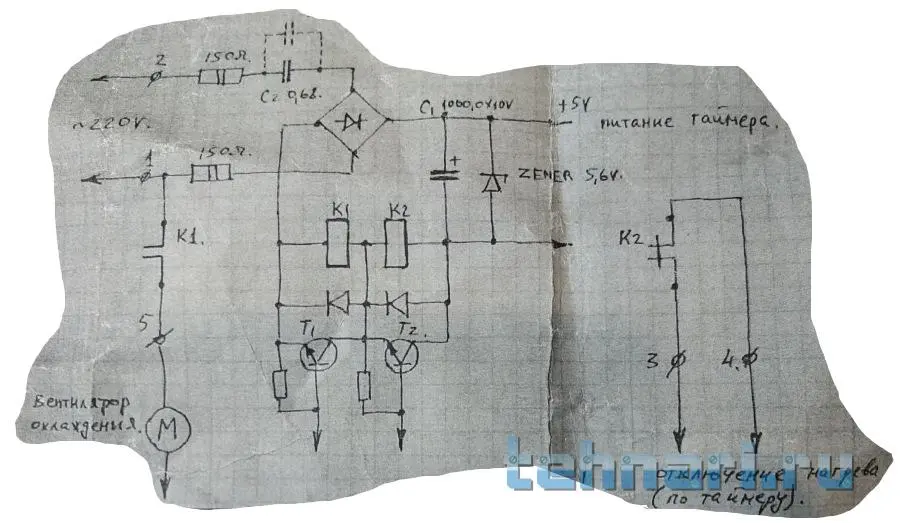 2
150Ω.
C2 0,68.
~220V.
1
150Ω.
C1 1000,0x10V
+5V
питание таймера.
ZENER 5,6V.
K1
K2
K1.
K2
T1
T2.
5
3
4.
M
Вентилятор
охлаждения.
отключение нагрева
(по таймеру).
tehnari.ru